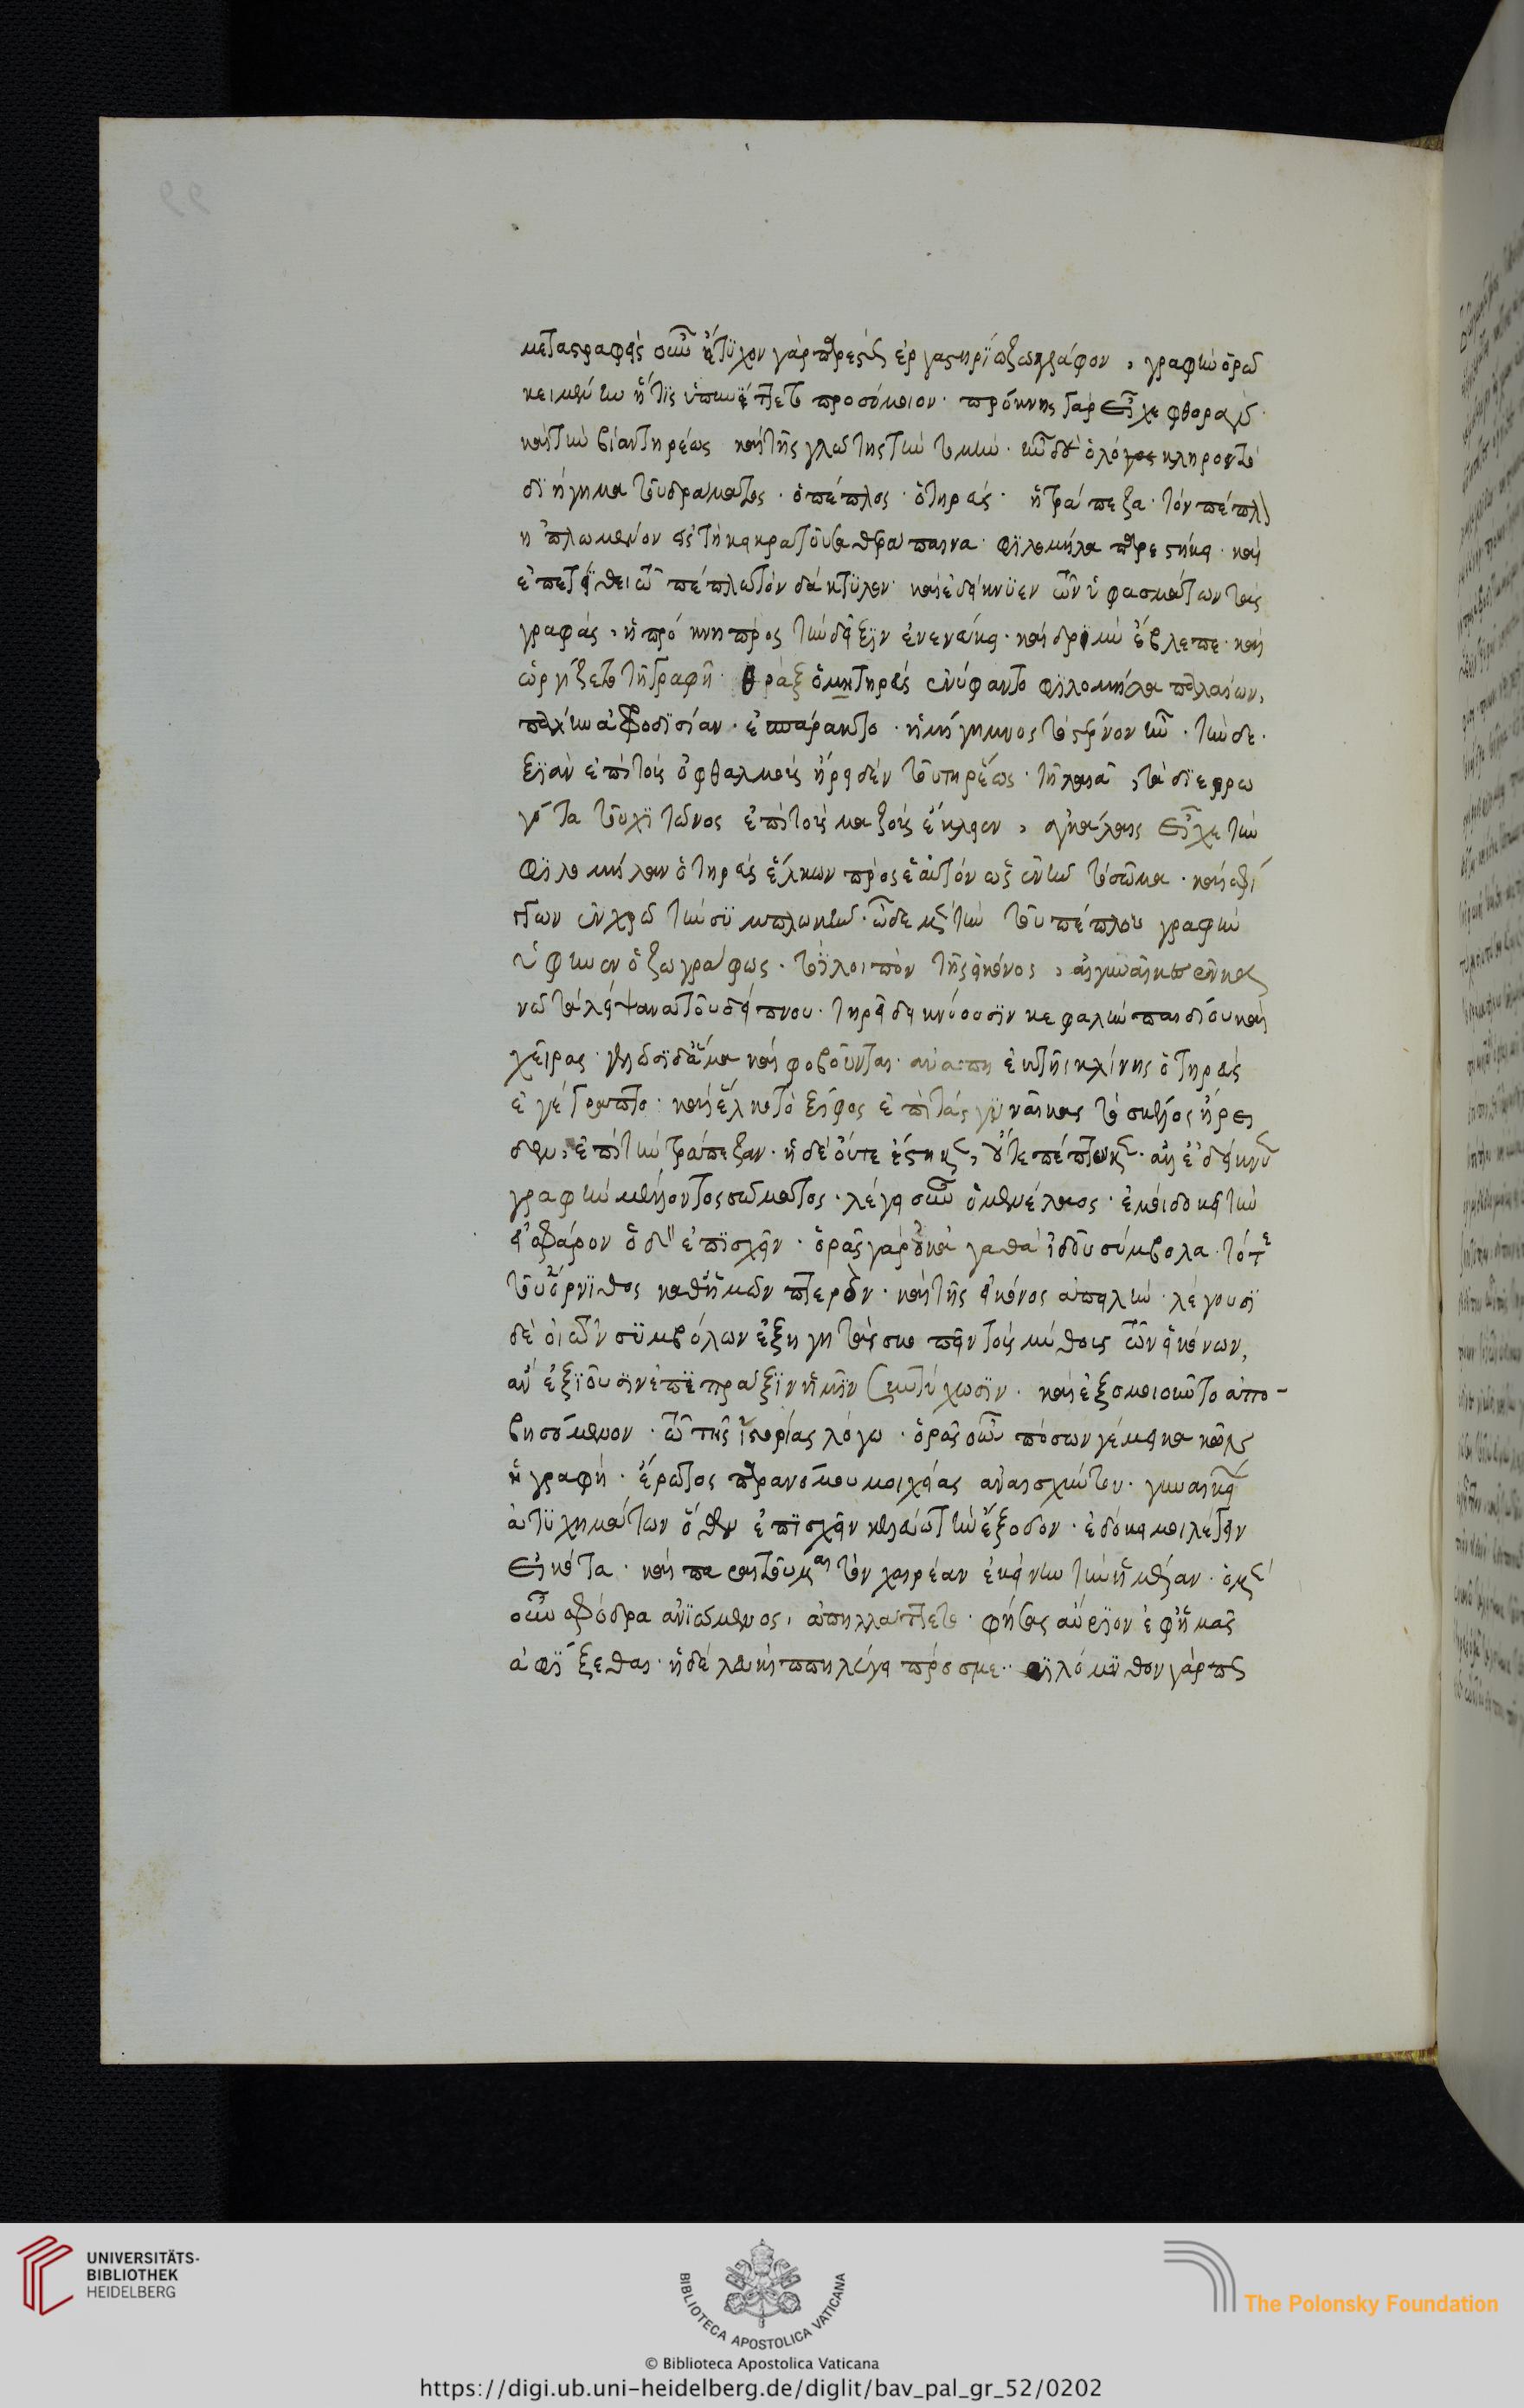 μεταστραφεὶς οὖν ἔτυχον γὰρ παρεστὼς ἐργαστηρίω ζωγράφου, γραφὴν ὁρῶ
κειμένην ἥτις ὑπηνίττετο προσόμοιον· πρόκνης γὰρ εἶχε φθορὰν·
καὶ τὴν βίαν τηρέως καὶ τῆς γλώττης τὴν τομὴν· ἦν δὲ ὁλόκληρον τὸ
διήγημα τοῦ δράματος· ὁ πέπλος· ὁ τηρεὺς· ἡ τράπεζα· τὸν πέπλ
ἡπλωμένον εἱστήκει κρατοῦσα θεράπαινα· φιλομήλα παρειστήκει· καὶ
ἐπετίθει τῶ πέπλω τὸν δάκτυλον· καὶ ἐδείκνυεν τῶν ὑφασμάτων τὰς
γραφάς, ἡ πρόκνη πρὸς τὴν δεῖξιν ἐνενεύκει· καὶ δριμὺ ἔβλεπε· καὶ
ὠργίζετο τῆ γραφῆ· θρὰξ ὁ τηρεὺς ἐνύφαντο φιλομήλα παλαίων,
πάλην ἀφροδισίαν· ἐσπάρακτο· ἡμίγυμνος τὸ στέρνον ἦν· τὴν δε·
ξιὰν ἐπὶ τοὺς ὀφθαλμοὺς ἤρειδεν τοῦ τηρέως· τῆ λαιᾶ, τὰ διερρω
γότα τοῦ χιτῶνος ἐπὶ τοὺς μαζοὺς ἔκλειεν, ἀγκάλαις εἶχε τὴν
φιλομήλαν ὁ τηρεὺς ἕλκων πρὸς ἑαυτὸν ὡς ἐνῆν τὸ σῶμα· καὶ σφί
γγων ἐν χρῶ τὴν συμπλοκὴν· ὧδε μὲν τὴν τοῦ πέπλου γραφὴν
ὕφηνεν ὁ ζωγράφος· τὸ λοιπὸν τῆς εἰκόνος, αἱ γυναῖκες ἐν κα
νῶ τὰ λείψανα τοῦ δείπνου· τηρεῖ δεικνύουσιν κεφαλὴν παιδίου καὶ
χεῖρας· γελῶσι δὲ ἅμα καὶ φοβοῦνται· ἀναπηδῶν ἐκ τῆς κλίνης ὁ τηρεὺς
ἐγέγραπτο· καὶ ἕλκων τὸ ξίφος ἐπὶ τὰς γυναῖκας τὸ σκέλος ἤρει
δεν, ἐπὶ τὴν τράπεζαν· ἡ δὲ οὔτε ἕστηκεν, οὔτε πέπτωκεν· ἀλλ' ἐδείκνυ
γραφὴν μέλλοντος πτώματος· λέγει οὖν ὁ μενέλαος· ἐμοὶ δοκεῖ τὴν
εἰς φάρον ὁδὸν ἐπισχεῖν· ὁρᾶς γὰρ οὐκ ἀγαθὰ δύο σύμβολα· τό τε
τοῦ ὄρνιθος καθ' ἡμῶν πτερὸν· καὶ τῆς εἰκόνος ἀπειλὴν· λέγουσι
δὲ οἱ τῶν συμβόλων ἐξηγηταὶ σκοπεῖν τοὺς μύθους τῶν εἰκόνων,
ἂν ἐξιοῦσιν ἐπὶ πράξιν ἡμῖν συντύχωσιν· καὶ ἐξομοιοῦν τὸ ἀπο-
βησόμενον· τῶ τῆς ἱστορίας λόγω· ὁρᾶς οὖν πόσων γέμει κακῶν
ἡ γραφή· ἔρωτος παρανόμου μοιχείας ἀναισχύντου· γυναικείων
ἀτυχημάτων ὅθεν ἐπισχεῖν κελεύω τὴν ἔξοδον· ἐδόκει μοι λέγειν
εἰκότα· καὶ παραιτοῦμαι τὸν χαιρέαν ἐκείνην τὴν ἡμέραν· ὁ μὲν
οὖν σφόδρα ἀνιώμενος, ἀπηλλάττετο· φήσας αὔριον ἐφ' ἡμᾶς
ἀφίξεσθαι· ἡ δὲ λευκίππη λέγει πρός με· φιλόμυθον γάρ πως
UNIVERSITÄTS-
BIBLIOTHEK
HEIDELBERG
BIBLIOTECA APOSTOLICA VATICANA
The Polonsky Foundation
© Biblioteca Apostolica Vaticana
https://digi.ub.uni-heidelberg.de/diglit/bav_pal_gr_52/0202